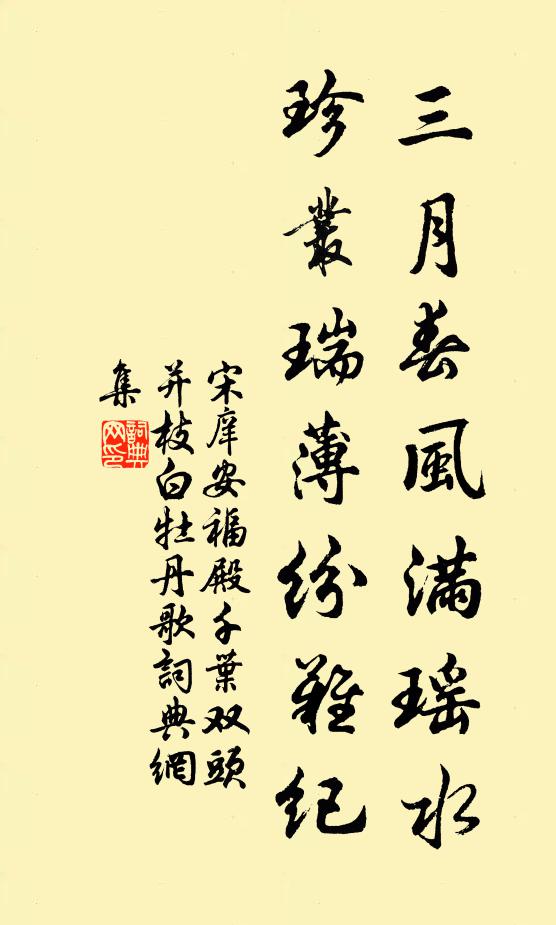 三月春風滿瑶水
珍叢瑞薄紛難紀
宋庠安福殿千葉双頭
并枝白牡丹歌詞典網
集
詞典
网印